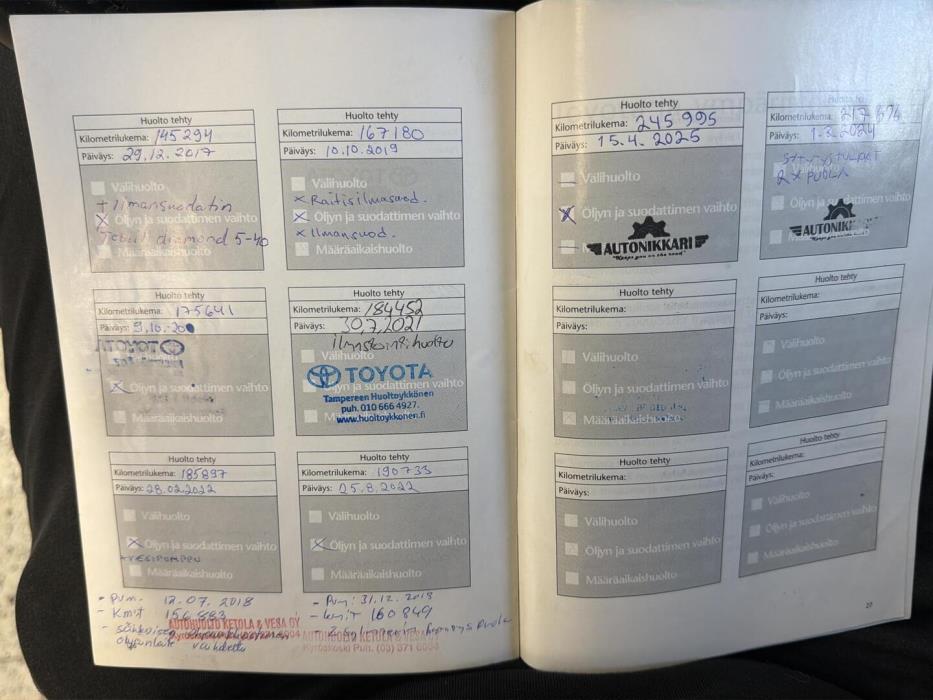 Huolto tehty
Kilometrilukema: 145294
Päiväys: 29.12.2017
Välihuolto
+ Ilmansuodatin
Öljyn ja suodattimen vaihto
diamond 5-40
Määräaikaishuolto
Huolto tehty
Kilometrilukema: 167180
Päiväys: 10.10.2019
Välihuolto
x Raitisilmasuod.
Öljyn ja suodattimen vaihto
x Ilmansuod.
Määräaikaishuolto
Huolto tehty
Kilometrilukema: 175641
Päiväys: 9.10.20
TOYOTA
Öljyn ja suodattimen vaihto
Määräaikaishuolto
Huolto tehty
Kilometrilukema: 184452
Päiväys: 30.7.2021
huolto
Välihuolto
TOYOTA
Öljyn ja suodattimen vaihto
Tampereen Huoltoykkönen
puh. 010 666 4927.
www.huoltoykkonen.fi
Huolto tehty
Kilometrilukema: 185897
Päiväys: 28.02.2022
Välihuolto
Öljyn ja suodattimen vaihto
+VESIPUMPPU
Määräaikaishuolto
Huolto tehty
Kilometrilukema: 190733
Päiväys: 25.8.2022
Välihuolto
Öljyn ja suodattimen vaihto
Määräaikaishuolto
- Pvm. 12.07.2018
- Kmit 156883
AUTOHUOLTO KETOLA & VESA OY
vaihdettu
- Pvm: 31.12.2018
- kmit 160849
AUTOHUOLTO KETOLA & VESA OY
Kyröskoski Puh. (03) 371 6004
Huolto tehty
Kilometrilukema: 245995
Päiväys: 15.4.2025
Välihuolto
Öljyn ja suodattimen vaihto
AUTONIKKARI
"Keeps you on the road"
Huolto tehty
Kilometrilukema: 217
Päiväys: 2024
SYTYTYSTULPAT
2x PUOLA
Öljyn ja suodattimen vaihto
AUTONIKKARI
Huolto tehty
Kilometrilukema:
Päiväys:
Välihuolto
Öljyn ja suodattimen vaihto
Määräaikaishuolto
Huolto tehty
Kilometrilukema:
Päiväys:
Välihuolto
Öljyn ja suodattimen vaihto
Määräaikaishuolto
Huolto tehty
Kilometrilukema:
Päiväys:
Välihuolto
Öljyn ja suodattimen vaihto
Määräaikaishuolto
Huolto tehty
Kilometrilukema:
Päiväys:
Välihuolto
Öljyn ja suodattimen vaihto
Määräaikaishuolto